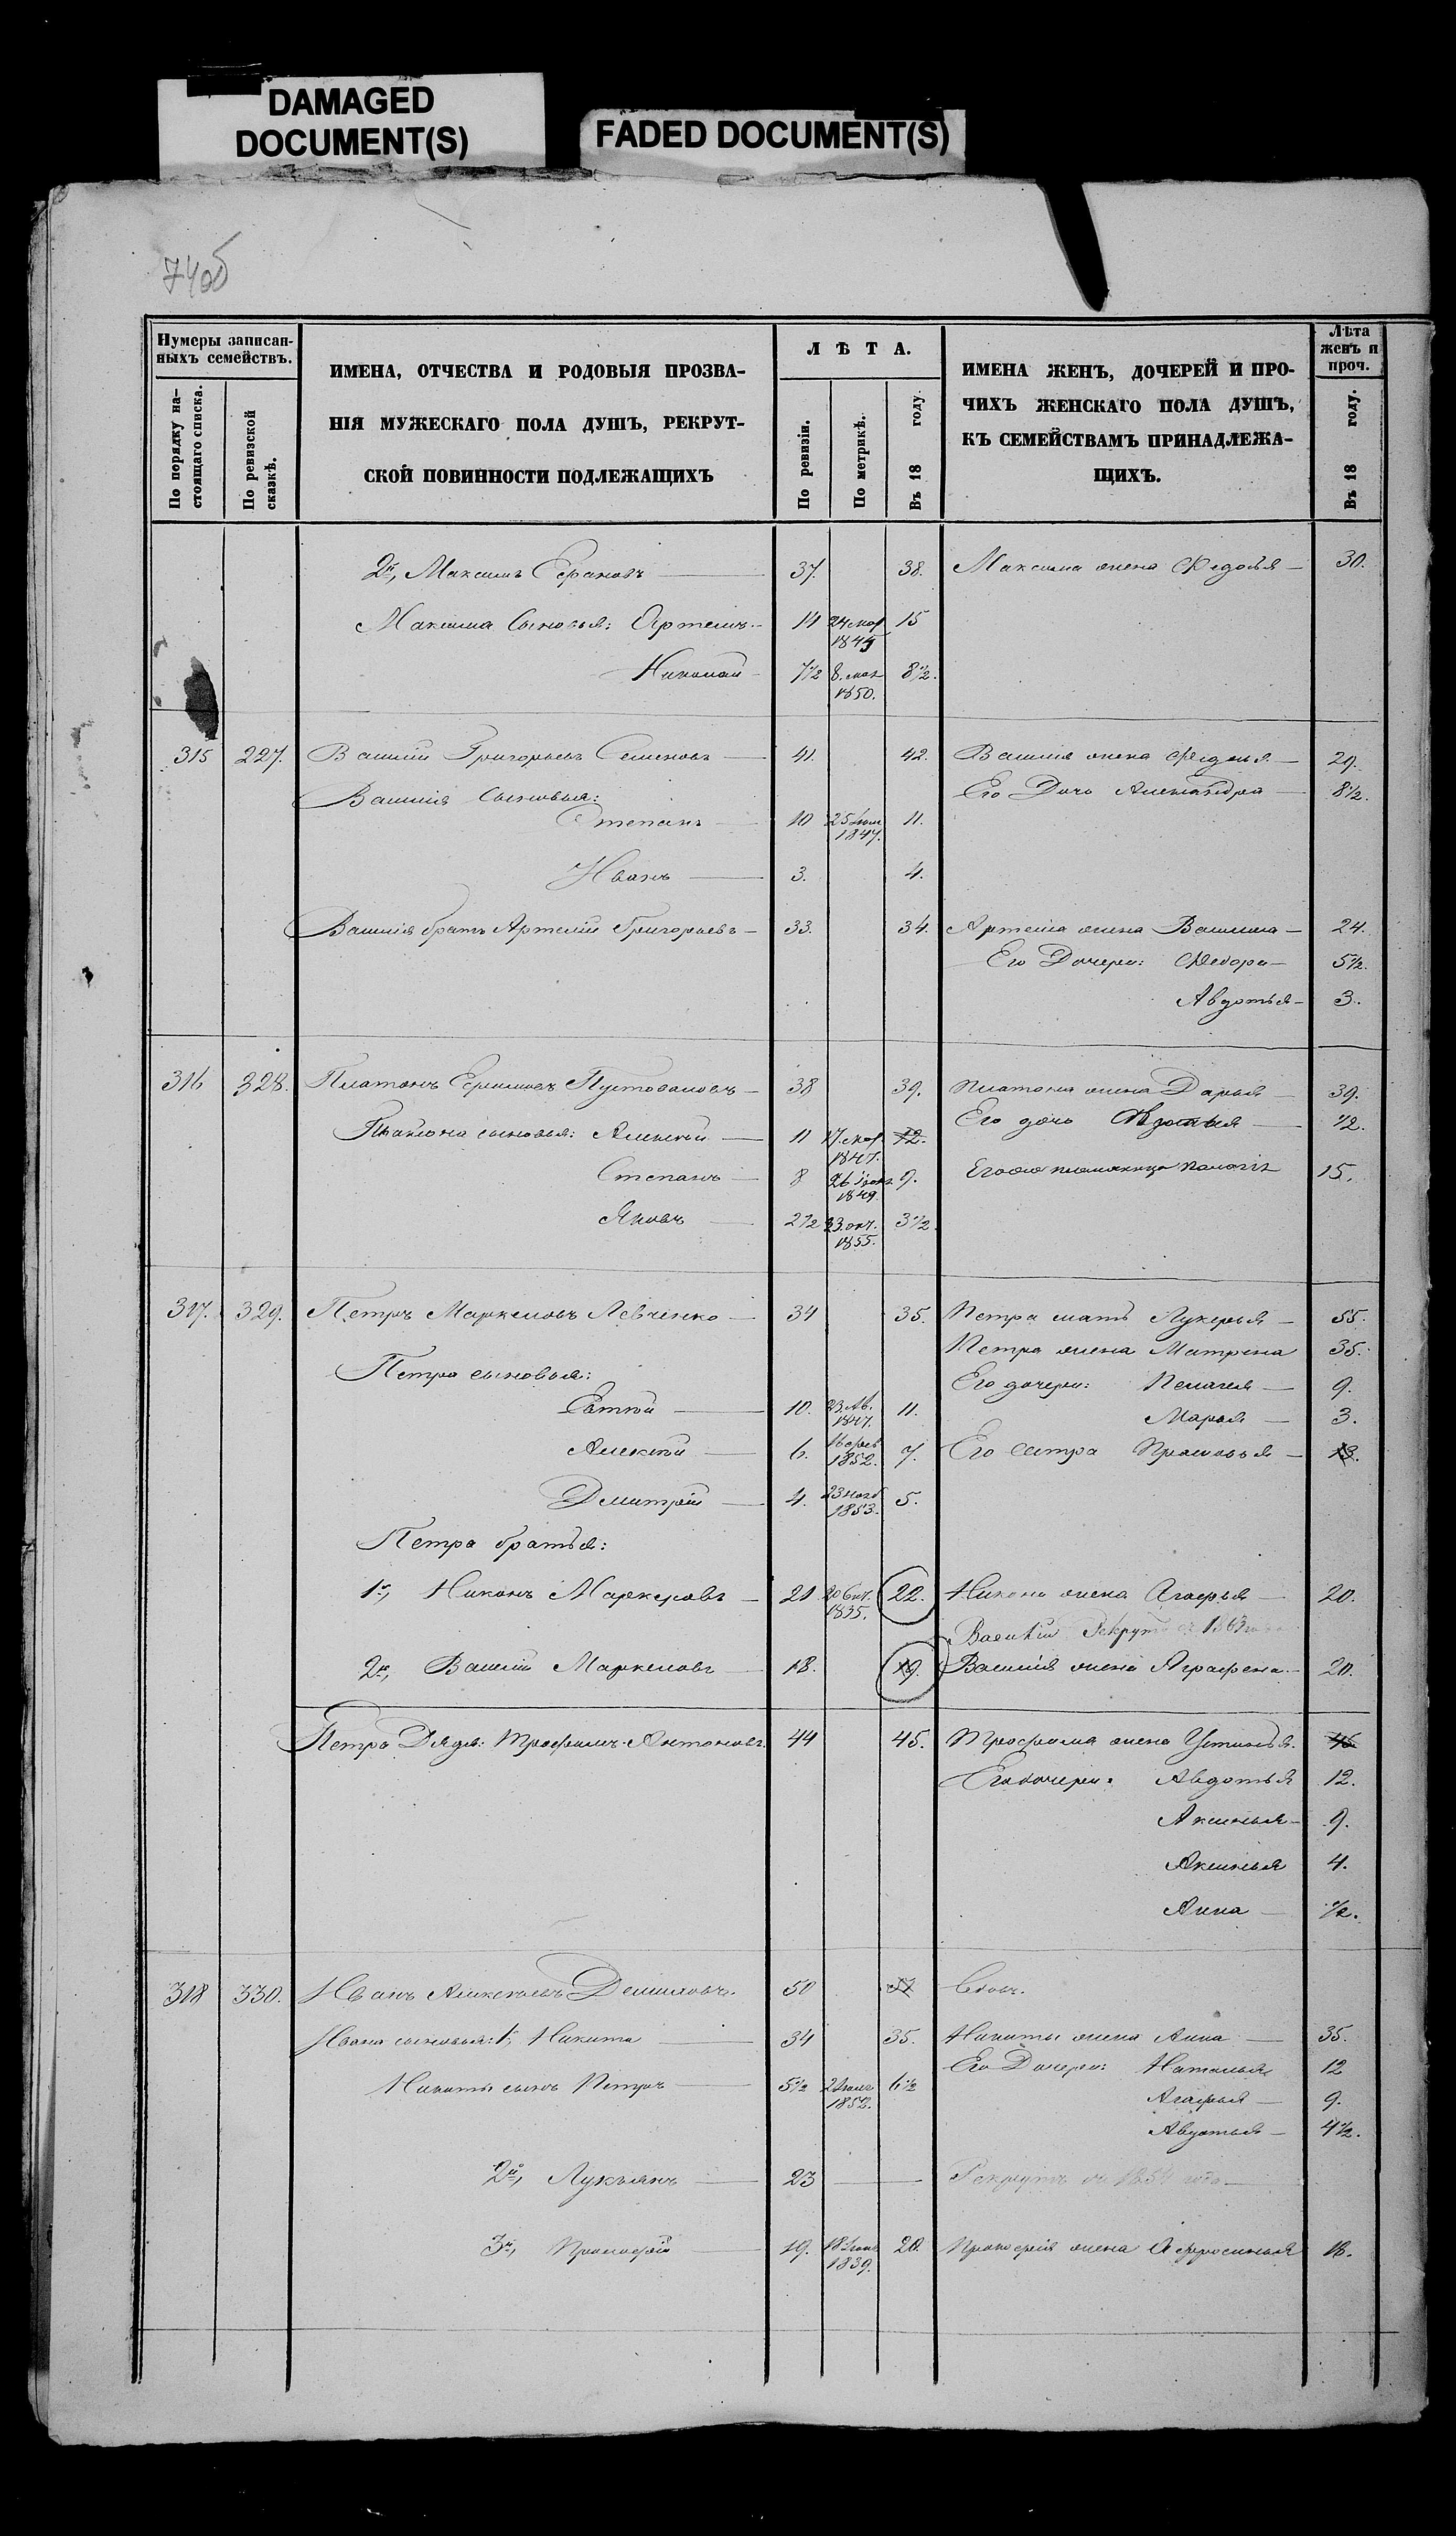 DAMAGED
DOCUMENT(S)
FADED DOCUMENT(S)
74об
Нумеры записан-
ныхъ семействъ.
По порядку на-
стоящаго списка.
По ревизской
сказкѣ.
ИМЕНА, ОТЧЕСТВА И РОДОВЫЯ ПРОЗВА-
НІЯ МУЖЕСКАГО ПОЛА ДУШЪ, РЕКРУТ-
СКОЙ ПОВИННОСТИ ПОДЛЕЖАЩИХЪ
ЛѢТА.
По ревизіи.
По метрикѣ.
Въ 18 году.
ИМЕНА ЖЕНЪ, ДОЧЕРЕЙ И ПРО-
ЧИХЪ ЖЕНСКАГО ПОЛА ДУШЪ,
КЪ СЕМЕЙСТВАМЪ ПРИНАДЛЕЖА-
ЩИХЪ.
Лѣта
женъ и
проч.
Въ 18 году.
2й, Максимъ 37. 38. Максима жена Федосья 30.
Максима Сыновья: Артемъ 14 24 мар 1845 15
Николай 7½ 8. мая 1850. 8½.
315 227. Василій Григорьевъ Семеновъ 41. 42. Василія жена Федосья 29.
Василія Сыновья: Его Дочь Александра 8½.
Степанъ 10 25 1847. 11.
Иванъ 3. 4.
Василія братъ Артемій Григорьевъ 33. 34. Артемія жена Василиса 24.
Его Дочери: Федора 5½.
Авдотья 3.
316 328. Платонъ Пустоваловъ 38 39. Платона жена Дарья 39.
Платона сыновья: Алексѣй 11 17. мар. 1847. 12. Его дочь Авдотья ½.
Степанъ 8 26 1849. 9. Его племянница Пелагія 15.
Яковъ 2½ 23. окт. 1855. 3½.
317. 329. Петръ Маркеловъ Левченко 34 35. Петра мать Лукерья 55.
Петра жена Матрена 35.
Петра сыновья: Его дочери: Пелагея 9.
10. 23. Ав. 1847. 11. Марья 3.
Алексѣй 6. 16 фев 1852. 7. Его сестра Прасковья 18.
Дмитрій 4. 23 нояб 1853. 5.
Петра братья:
1й, Никонъ Маркеловъ 21 20 Окт. 1835. 22. Никона жена Агафья 20.
Василій Рекрутъ 1863 года
2й, Василій Маркеловъ 18. 19. Василія жена Аграфена 20.
Петра Дядя: Трофимъ Антоновъ. 44 45. Трофима жена Устинья. 46
Его дочери: Авдотья 12.
Аксинья 9.
Аксинья 4.
Анна ½.
318 330. Иванъ Алексѣевъ Демидовъ. 50 51 Вдов.
Ивана сыновья: 1й, Никита 34 35. Никиты жена Анна 35.
Его Дочери: Наталья 12
Никиты сынъ Петръ 5½ 1852. 6½ Агафья 9.
Авдотья 4½.
2й, Лукьянъ 23 Рекрутъ съ 1854 года
3й, Прокофій 19. 18 1839. 20. Прокофія жена Афросинья 18.